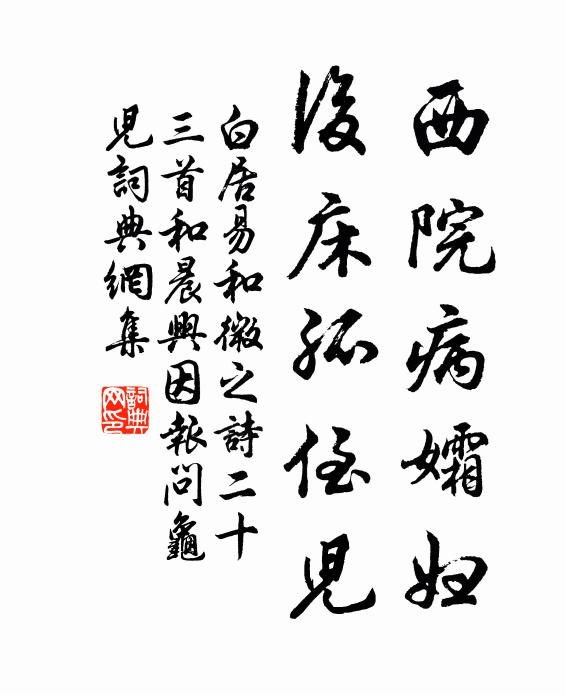 西院病孀婦
後床孤侄兒
白居易和微之詩二十
三首和晨興因報問龜
兒詞典網集
詞典网印